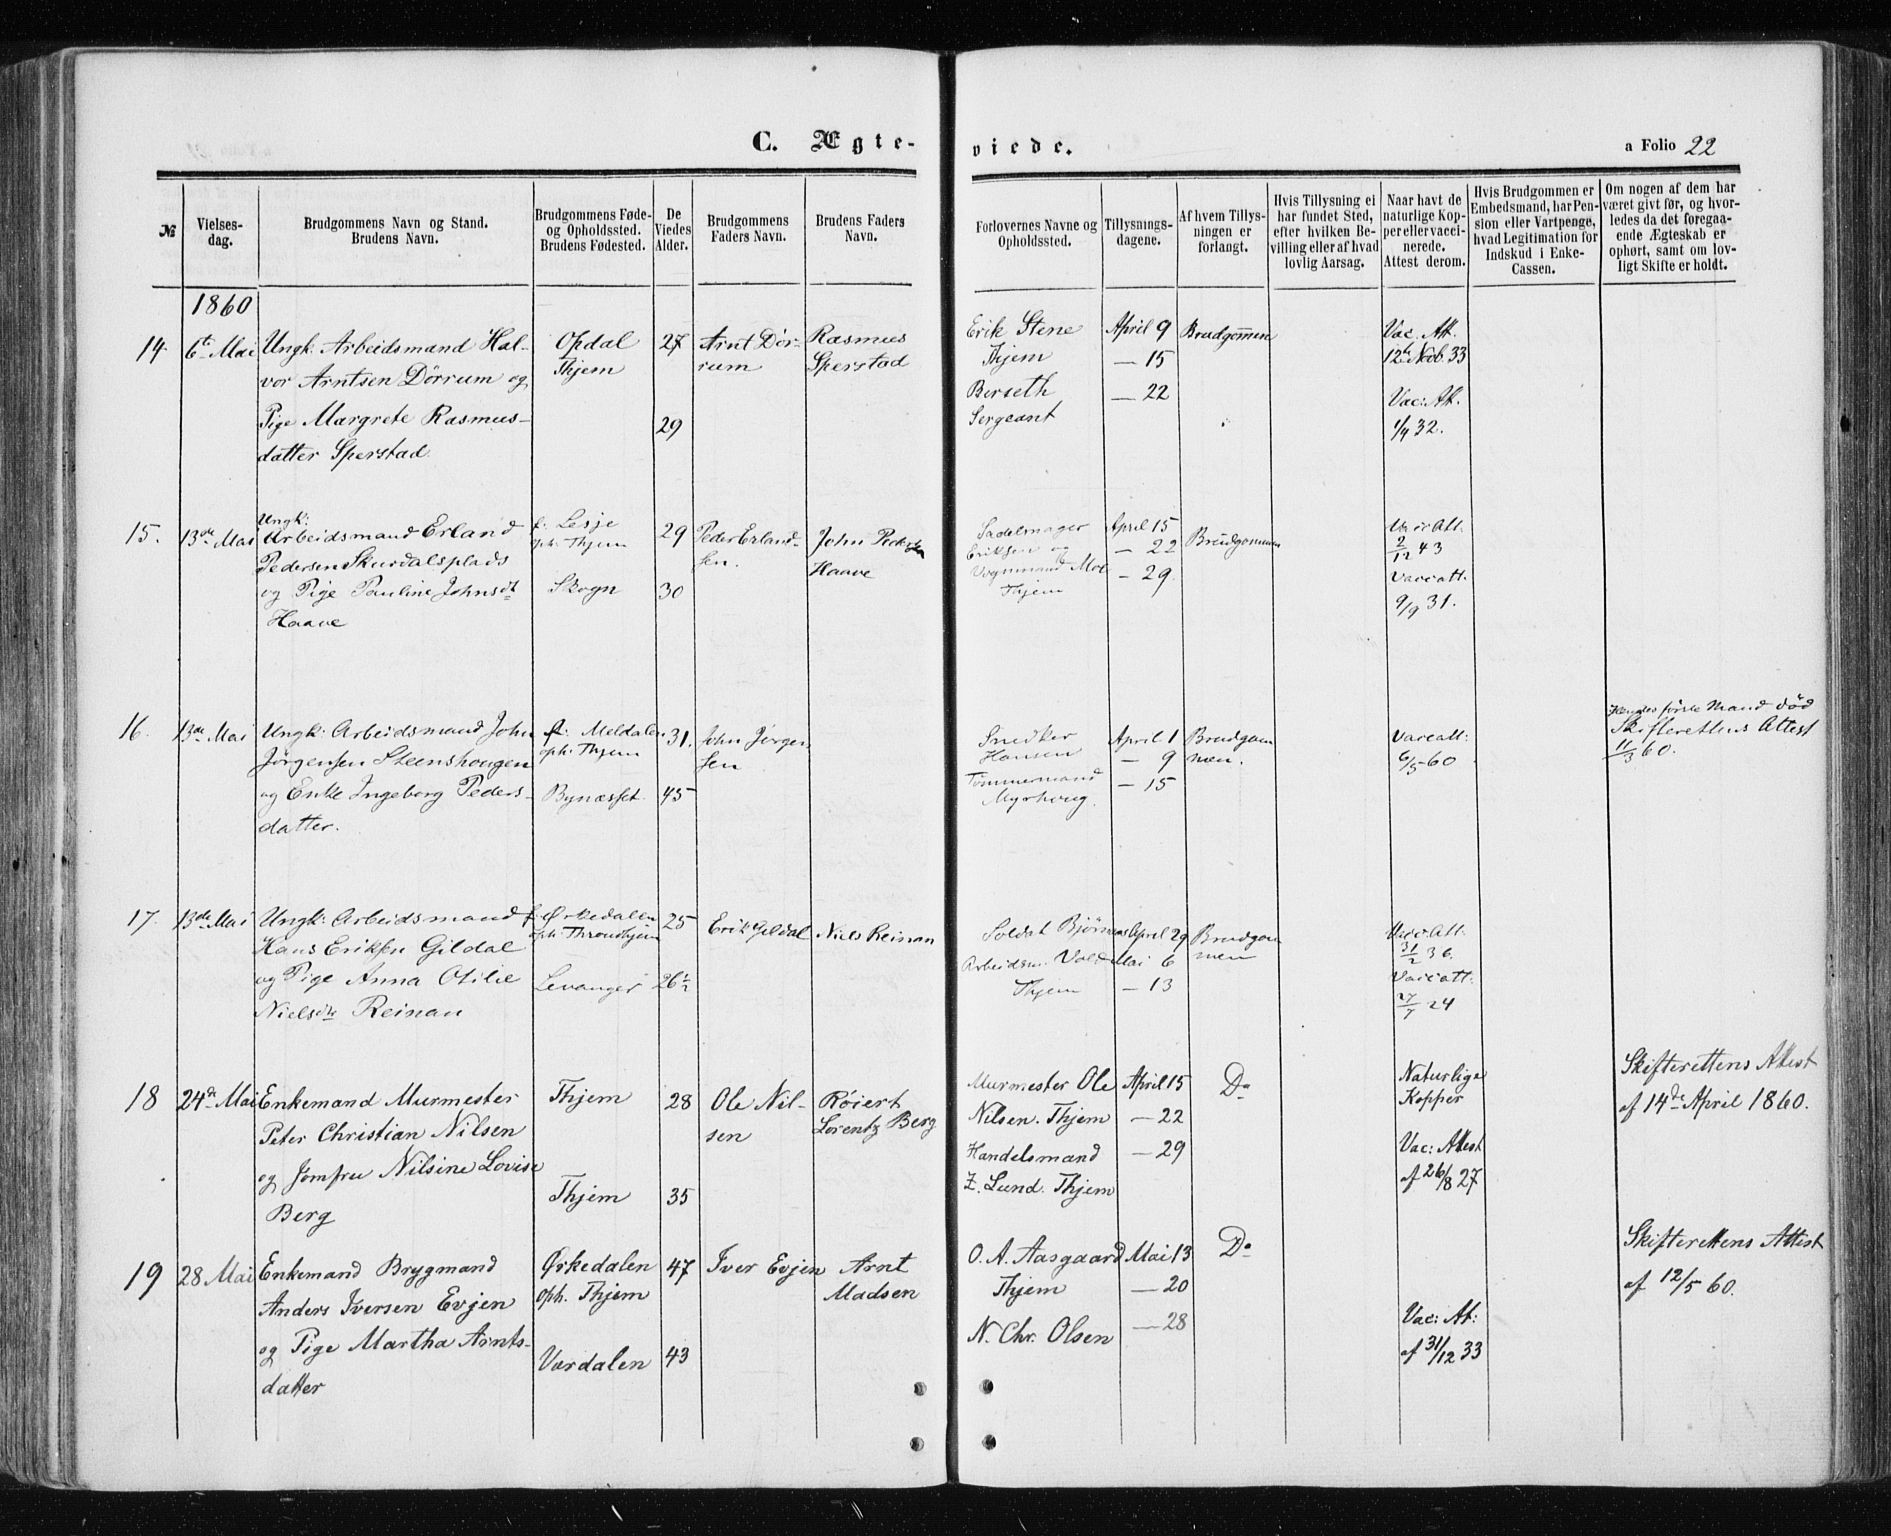 C. Ægte-
viede.
a Folio 22
№
Vielses-
dag.
Brudgommens Navn og Stand.
Brudens Navn.
Brudgommens Føde-
og Opholdssted.
Brudens Fødested.
De
Viedes
Alder.
Brudgommens
Faders Navn.
Brudens Faders
Navn.
Forlovernes Navne og
Opholdssted.
Tillysnings-
dagene.
Af hvem Tillys-
ningen er
forlangt.
Hvis Tillysning ei
har fundet Sted,
efter hvilken Be-
villing eller af hvad
lovlig Aarsag.
Naar havt de
naturlige Kop-
per eller vacci-
nerede.
Attest derom.
Hvis Brudgommen er
Embedsmand, har Pen-
sion eller Vartpenge,
hvad Legitimation for
Indskud i Enke-
Cassen.
Om nogen af dem har
været givt før, og hvor-
ledes da det foregaa-
ende Ægteskab er
ophørt, samt om lov-
ligt Skifte er holdt.
1860
14.
6te Mai
Ungk: Arbeidsmand Hal-
vor Arntsen Dörrum og
Pige Margrete Rasmus-
datter Sperstad.
Opdal
Thjem
27
29
Arnt Dör-
rum
Rasmus
Sperstad
Erik Stene
Thjem
Berseth
Sergeant
April 9
— 15
— 22
Brudgommen
Vac. Att.
12te Novb. 33
Vac: Att.
1/9 32.
15.
13de Mai
Ungk:
Arbeidsmand Erland
Pedersen Skurdalsplads
og Pige Pauline Johnsdt
Haave
f. Lesje
oph. Thjem
Skogn
29
30
Peder Erland-
sen.
John Peder
Haave
Sadelmager
Eriksen og
Vognmand Moe
Thjem
April 15
— 22
— 29.
Brudgommen
Vacc Att.
2/12 43
Vacc att.
9/9 31.
16.
13de Mai
Ungk: Arbeidsmand John
Jørgensen Steenshougen
og Enke Ingeborg Peders-
datter.
f: Meldalen
oph: Thjem
Bynæsset
31.
45
John Jørgen-
sen
Snedker
Hansen
Tømmermand
Myrhoug.
April 1
— 9
— 15
Brudgom
men.
Vacc att:
6/5 60
Hendes første Mand død
Skifterettens Attest
11/3 60.
17.
13de Mai
Ungk: Arbeidsmand
Hans Eriksen Gildal
og Pige Anna Otilie
Nielsdtr Reinan
f. Ørkedalen
oph. Throndhjem
Levanger
25
26½
Erik Gildal
Niels Reinan
Soldat Bjørnaas
Arbeidsm. Vold
Thjem
April 29
Mai 6
— 13
Brudgom
men
Vacc Att.
31/2 36.
Vacc att.
27/7 24
18
24de Mai
Enkemand Murmester
Peter Christian Nilsen
og Jomfru Nilsine Lovise
Berg
Thjem
Thjem
28
35
Ole Nil-
sen
Røiert
Lorentz Berg
Murmester Ole
Nilsen. Thjem
Handelsmand
Z. Lund. Thjem
April 15
— 22
— 29
Do
Naturlige
Kopper
Vac: Attest
af 26/8 27
Skifterettens Attest
af 14de April 1860.
19
28 Mai
Enkemand Brygmand
Anders Iversen Evjen
og Pige Martha Arnts-
datter
Ørkedalen
oph. Thjem
Værdalen
47
43
Iver Evjen
Arnt
Madsen
O. A. Aasgaard
Thjem
N. Chr. Olsen
Mai 13
— 20
— 28
Do
Vac: At:
af 31/12 33
Skifterettens Attest
af 12/5 60.